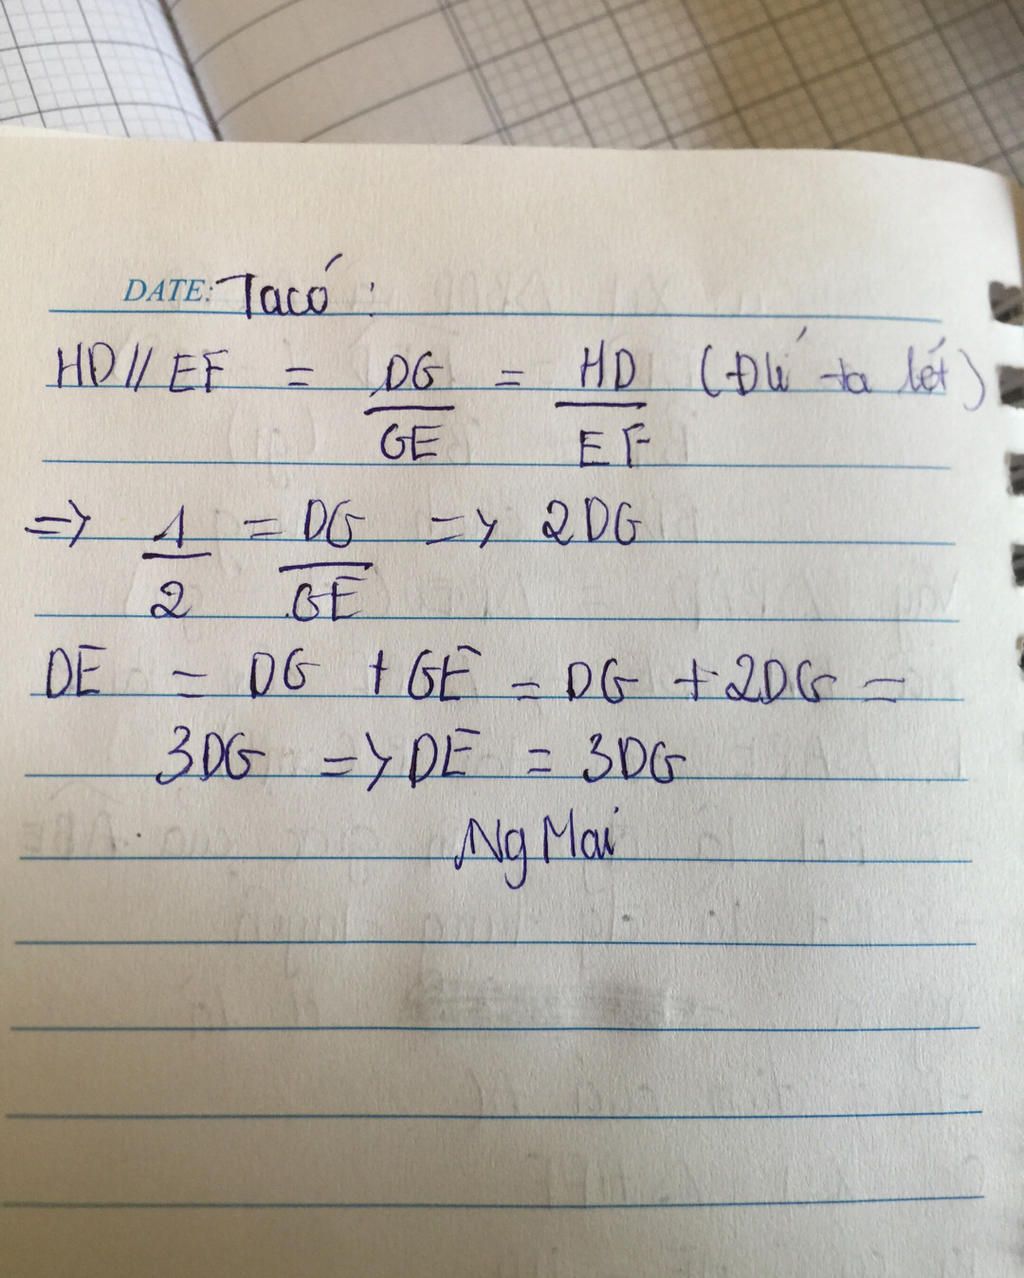 DATE: Ta có :
HD // EF = DG/GE = HD/EF (Đlí ta lét)
=> 1/2 = DG/GE => 2DG
DE = DG + GE = DG + 2DG =
3DG => DE = 3DG
Ng Mai